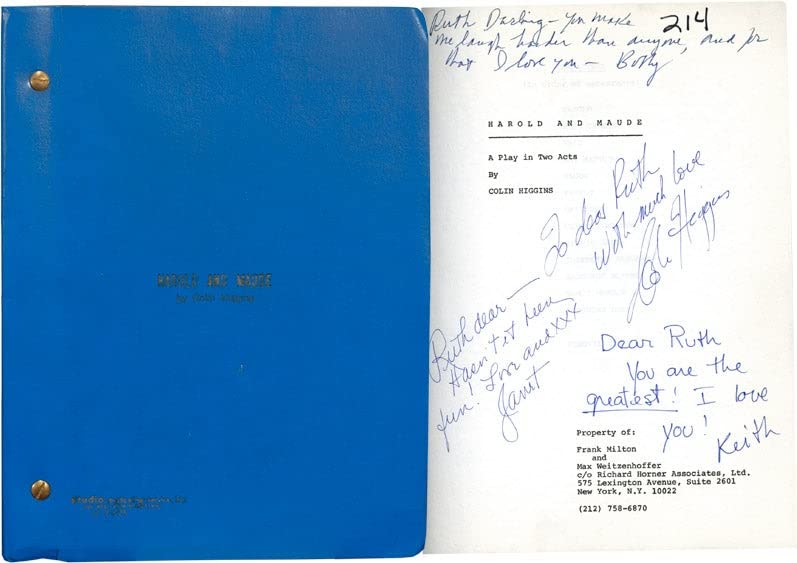 HAROLD AND MAUDE
by Colin Higgins
Ruth Darling – you make
me laugh harder than anyone, and for
that I love you –
214
HAROLD AND MAUDE
A Play in Two Acts
By
COLIN HIGGINS
To dear Ruth
With much love
Colin Higgins
Ruth dear —
Hasn't it been
fun! Love and xxx
Janet
Dear Ruth
You are the
greatest! I love
you!
Keith
Property of:
Frank Milton
and
Max Weitzenhoffer
c/o Richard Horner Associates, Ltd.
575 Lexington Avenue, Suite 2601
New York, N.Y. 10022
(212) 758-6870